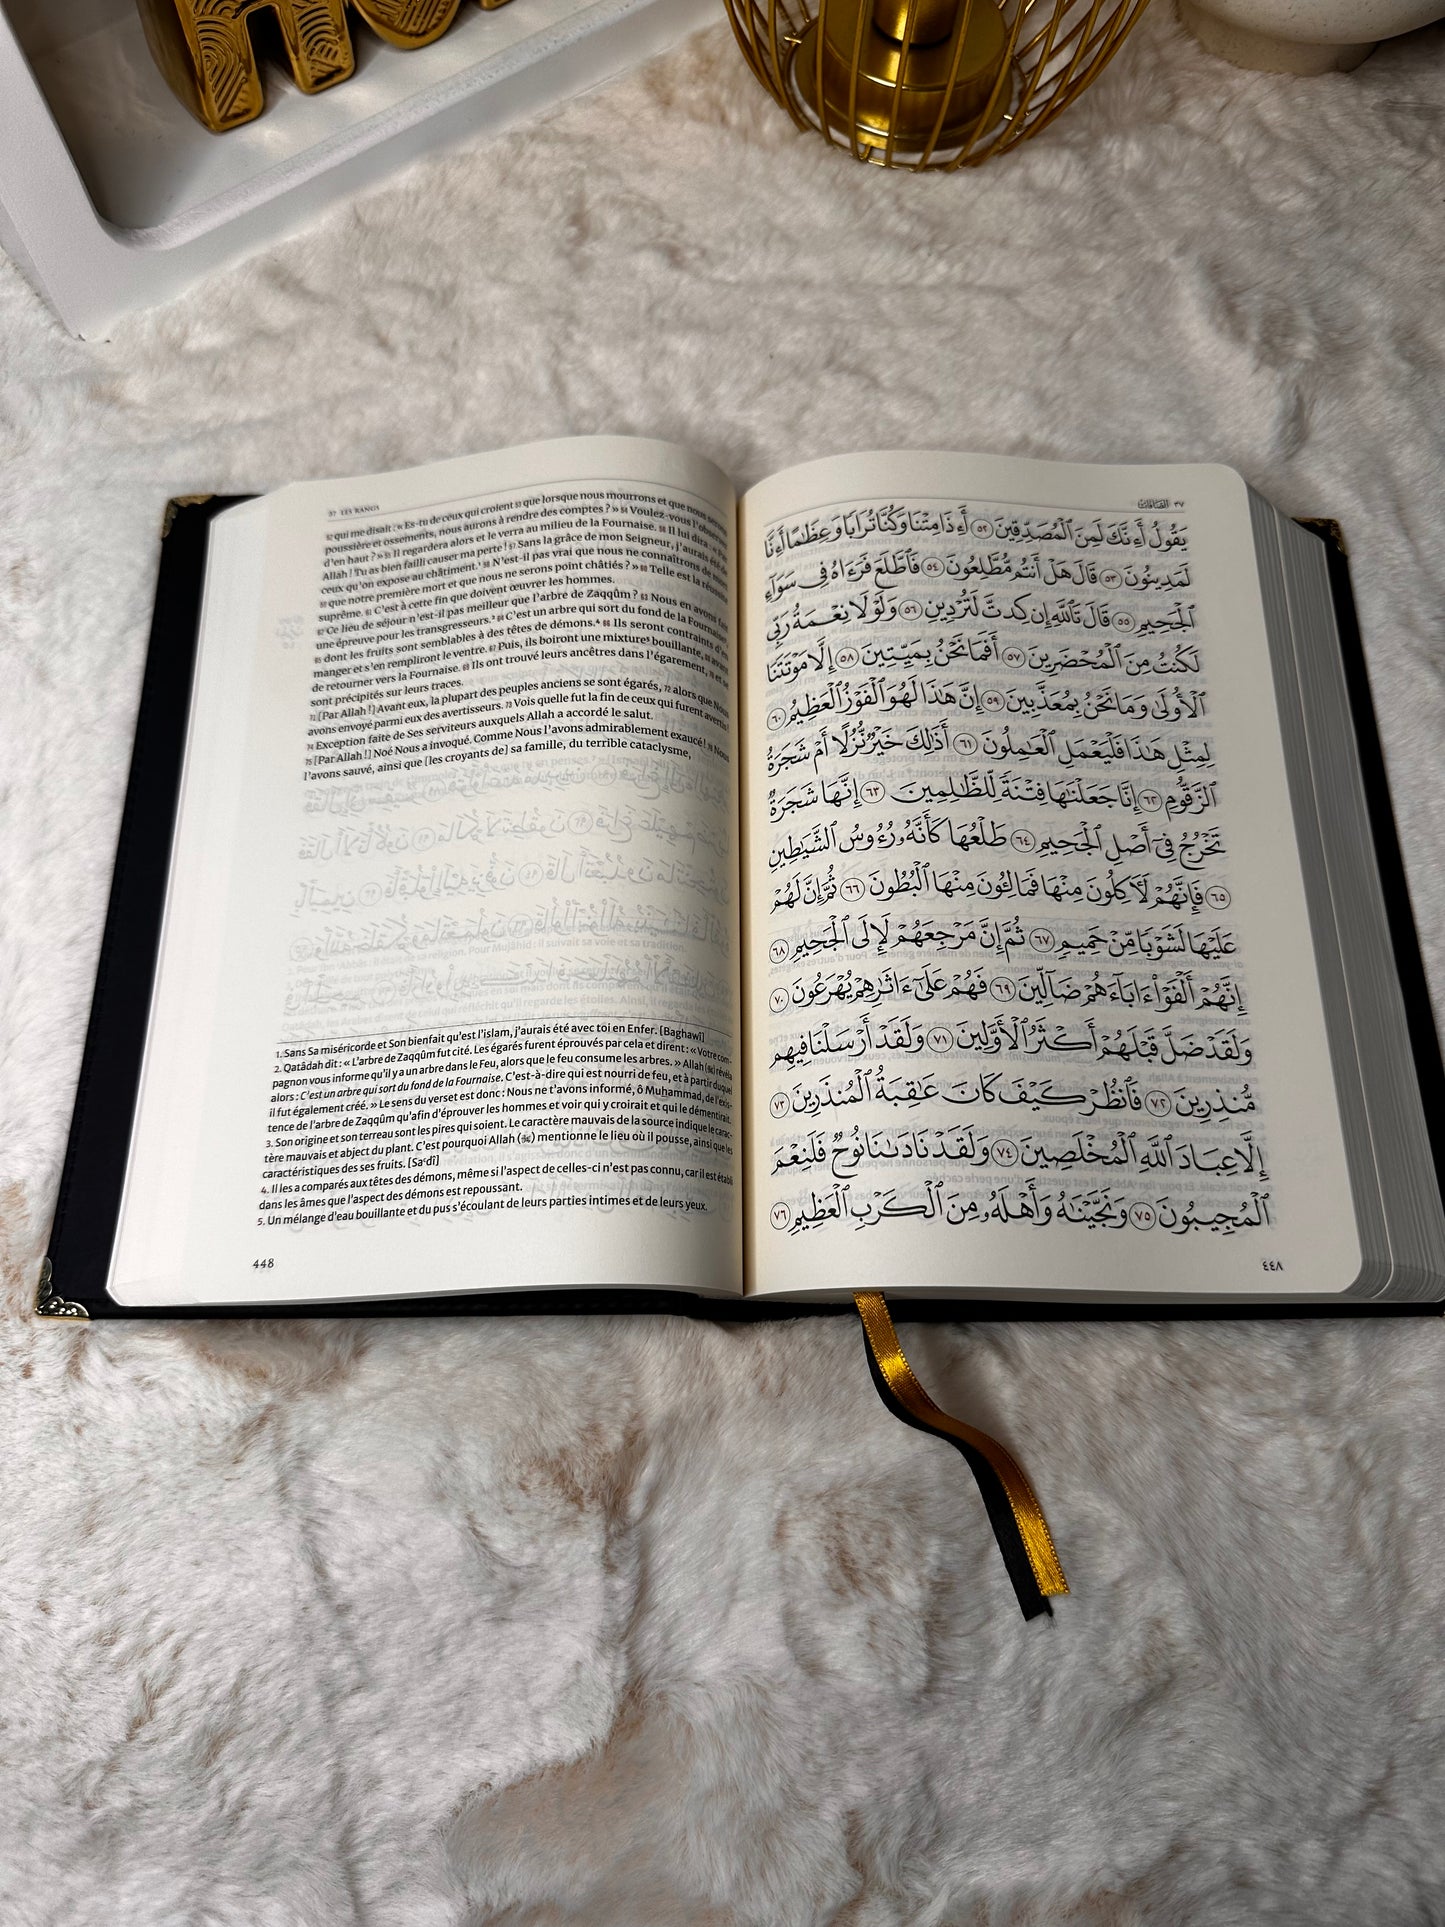 37 LES RANGS
52 qui me disait : « Es-tu de ceux qui croient 53 que lorsque nous mourrons et que nous serons
poussière et ossements, nous aurons à rendre des comptes ? » 54 Voulez-vous l'observer
d'en haut ? » 55 Il regardera alors et le verra au milieu de la Fournaise. 56 Il lui dira : « Par
Allah ! Tu as bien failli causer ma perte ! 57 Sans la grâce de mon Seigneur, j'aurais été de
ceux qu'on expose au châtiment.¹ 58 N'est-il pas vrai que nous ne connaîtrons de mort
59 que notre première mort et que nous ne serons point châtiés ? » 60 Telle est la réussite
suprême. 61 C'est à cette fin que doivent œuvrer les hommes.
62 Ce lieu de séjour n'est-il pas meilleur que l'arbre de Zaqqûm ? 63 Nous en avons fait
une épreuve pour les transgresseurs.² 64 C'est un arbre qui sort du fond de la Fournaise³,
65 dont les fruits sont semblables à des têtes de démons.⁴ 66 Ils seront contraints d'en
manger et s'en rempliront le ventre. 67 Puis, ils boiront une mixture⁵ bouillante, 68 avant
de retourner vers la Fournaise. 69 Ils ont trouvé leurs ancêtres dans l'égarement, 70 et se
sont précipités sur leurs traces.
71 [Par Allah !] Avant eux, la plupart des peuples anciens se sont égarés, 72 alors que Nous
avons envoyé parmi eux des avertisseurs. 73 Vois quelle fut la fin de ceux qui furent avertis !
74 Exception faite de Ses serviteurs auxquels Allah a accordé le salut.
75 [Par Allah !] Noé Nous a invoqué. Comme Nous l'avons admirablement exaucé ! 76 Nous
l'avons sauvé, ainsi que [les croyants de] sa famille, du terrible cataclysme,
1. Sans Sa miséricorde et Son bienfait qu'est l'islam, j'aurais été avec toi en Enfer. [Baghawî]
2. Qatâdah dit : « L'arbre de Zaqqûm fut cité. Les égarés furent éprouvés par cela et dirent : « Votre com-
pagnon vous informe qu'il y a un arbre dans le Feu, alors que le feu consume les arbres. » Allah (ﷻ) révéla
alors : C'est un arbre qui sort du fond de la Fournaise. C'est-à-dire qui est nourri de feu, et à partir duquel
il fut également créé. » Le sens du verset est donc : Nous ne t'avons informé, ô Muhammad, de l'exis-
tence de l'arbre de Zaqqûm qu'afin d'éprouver les hommes et voir qui y croirait et qui le démentirait.
3. Son origine et son terreau sont les pires qui soient. Le caractère mauvais de la source indique le carac-
tère mauvais et abject du plant. C'est pourquoi Allah (ﷻ) mentionne le lieu où il pousse, ainsi que les
caractéristiques des ses fruits. [Sa'dî]
4. Il les a comparés aux têtes des démons, même si l'aspect de celles-ci n'est pas connu, car il est établi
dans les âmes que l'aspect des démons est repoussant.
5. Un mélange d'eau bouillante et du pus s'écoulant de leurs parties intimes et de leurs yeux.
448
٣٧ الصافات
يَقُولُ أَءِنَّكَ لَمِنَ ٱلْمُصَدِّقِينَ ٥٢ أَءِذَا مِتْنَا وَكُنَّا تُرَابًا وَعِظَٰمًا أَءِنَّا
لَمَدِينُونَ ٥٣ قَالَ هَلْ أَنتُم مُّطَّلِعُونَ ٥٤ فَٱطَّلَعَ فَرَءَاهُ فِى سَوَآءِ
ٱلْجَحِيمِ ٥٥ قَالَ تَٱللَّهِ إِن كِدتَّ لَتُرْدِينِ ٥٦ وَلَوْلَا نِعْمَةُ رَبِّى
لَكُنتُ مِنَ ٱلْمُحْضَرِينَ ٥٧ أَفَمَا نَحْنُ بِمَيِّتِينَ ٥٨ إِلَّا مَوْتَتَنَا
ٱلْأُولَىٰ وَمَا نَحْنُ بِمُعَذَّبِينَ ٥٩ إِنَّ هَٰذَا لَهُوَ ٱلْفَوْزُ ٱلْعَظِيمُ ٦٠
لِمِثْلِ هَٰذَا فَلْيَعْمَلِ ٱلْعَٰمِلُونَ ٦١ أَذَٰلِكَ خَيْرٌ نُّزُلًا أَمْ شَجَرَةُ
ٱلزَّقُّومِ ٦٢ إِنَّا جَعَلْنَٰهَا فِتْنَةً لِّلظَّٰلِمِينَ ٦٣ إِنَّهَا شَجَرَةٌ
تَخْرُجُ فِىٓ أَصْلِ ٱلْجَحِيمِ ٦٤ طَلْعُهَا كَأَنَّهُۥ رُءُوسُ ٱلشَّيَٰطِينِ
٦٥ فَإِنَّهُمْ لَءَاكِلُونَ مِنْهَا فَمَالِـُٔونَ مِنْهَا ٱلْبُطُونَ ٦٦ ثُمَّ إِنَّ لَهُمْ
عَلَيْهَا لَشَوْبًا مِّنْ حَمِيمٍ ٦٧ ثُمَّ إِنَّ مَرْجِعَهُمْ لَإِلَى ٱلْجَحِيمِ ٦٨
إِنَّهُمْ أَلْفَوْا۟ ءَابَآءَهُمْ ضَآلِّينَ ٦٩ فَهُمْ عَلَىٰٓ ءَاثَٰرِهِمْ يُهْرَعُونَ ٧٠
وَلَقَدْ ضَلَّ قَبْلَهُمْ أَكْثَرُ ٱلْأَوَّلِينَ ٧١ وَلَقَدْ أَرْسَلْنَا فِيهِم
مُّنذِرِينَ ٧٢ فَٱنظُرْ كَيْفَ كَانَ عَٰقِبَةُ ٱلْمُنذَرِينَ ٧٣
إِلَّا عِبَادَ ٱللَّهِ ٱلْمُخْلَصِينَ ٧٤ وَلَقَدْ نَادَىٰنَا نُوحٌ فَلَنِعْمَ
ٱلْمُجِيبُونَ ٧٥ وَنَجَّيْنَٰهُ وَأَهْلَهُۥ مِنَ ٱلْكَرْبِ ٱلْعَظِيمِ ٧٦
٤٤٨